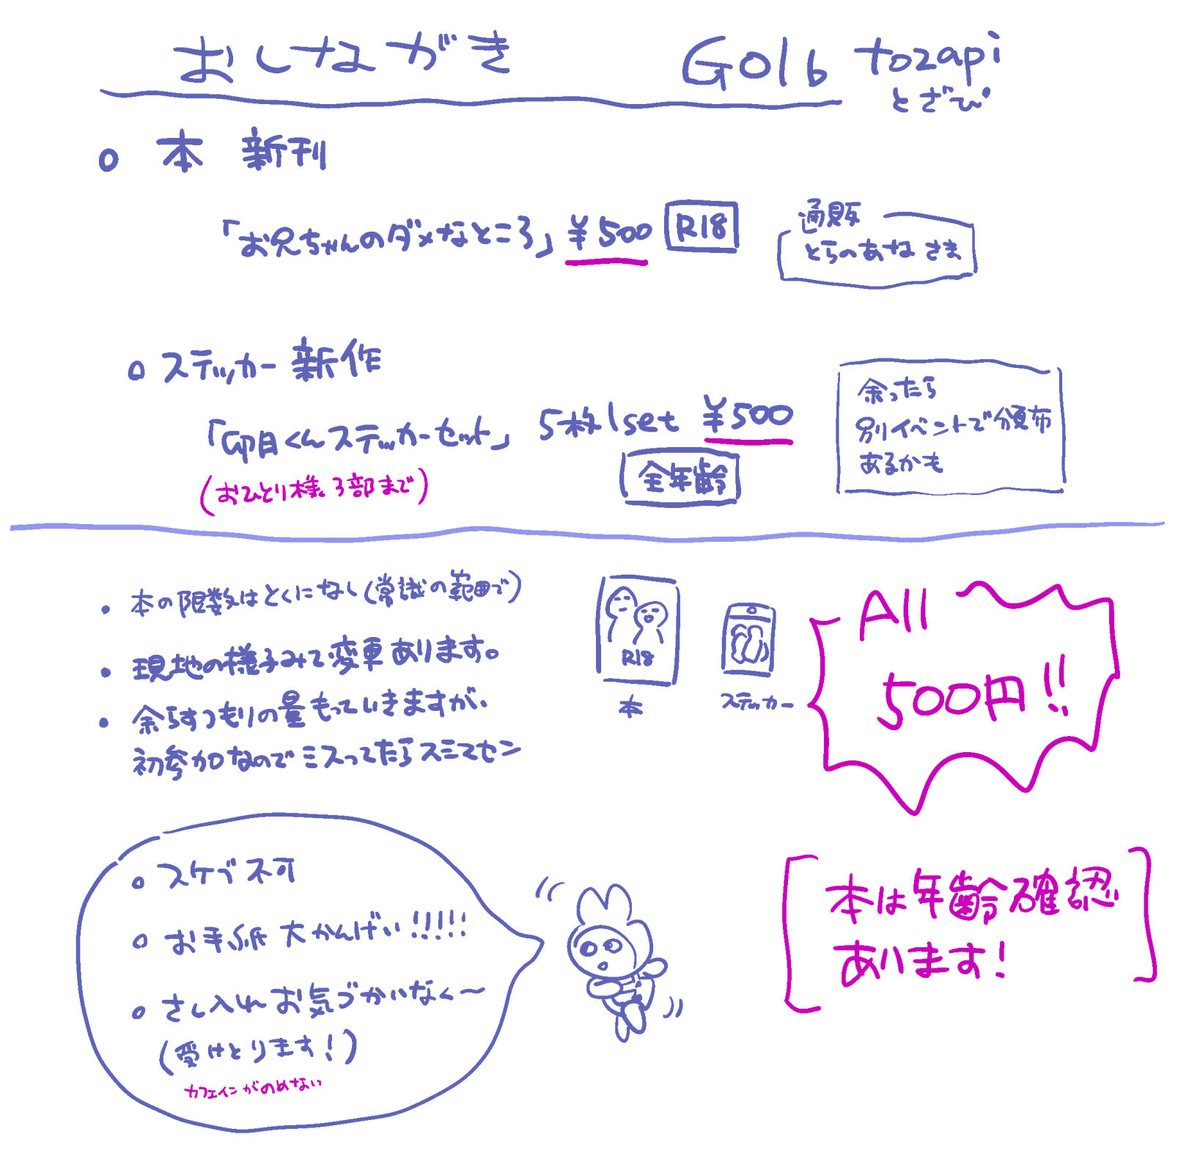 おしながき
G01b tozapi
とざぴ
○ 本 新刊
「お兄ちゃんのダメなところ」 ¥500 R18
通販
とらのあなさま
○ ステッカー 新作
「卯目くんステッカーセット」 5枚1set ¥500
(おひとり様3部まで)
全年齢
余ったら
別イベントで頒布
あるかも
・本の限数はとくになし(常識の範囲で)
・現地の様子みて変更あります。
・余らすつもりの量もっていきますが、
初参加なのでミスってたらスミマセン
R18
本
ステッカー
All
500円!!
○ スケブ不可
○ お手紙 大かんげい!!!!!
○ さし入れ お気づかいなく〜
(受けとります!)
カフェインがのめない
本は年齢確認
あります!